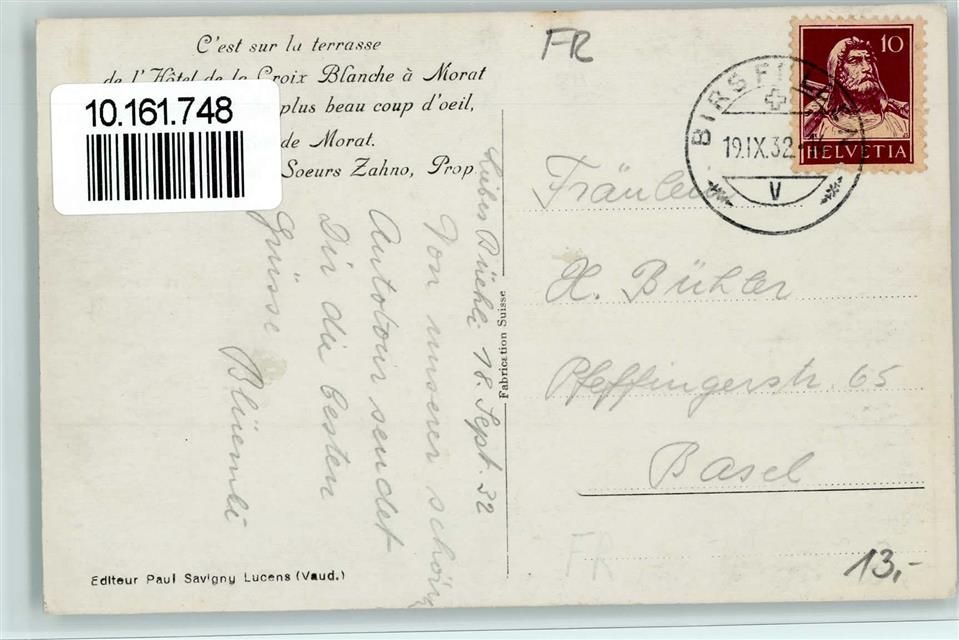 C'est sur la terrasse
de l'Hôtel de la Croix Blanche à Morat
plus beau coup d'oeil,
de Morat.
Soeurs Zahno, Prop.
10.161.748
FR
10
HELVETIA
BIRSFELDEN
19.IX.32.
V
Fräulein
H. Bühler
Pfeffingerstr. 65
Basel
Liebes Büehli 18. Sept. 32
Von unserer schönen
Autotour sendet
Dir die besten
Grüsse
Blüemli
Fabrication Suisse
Editeur Paul Savigny Lucens (Vaud.)
FR
13,-